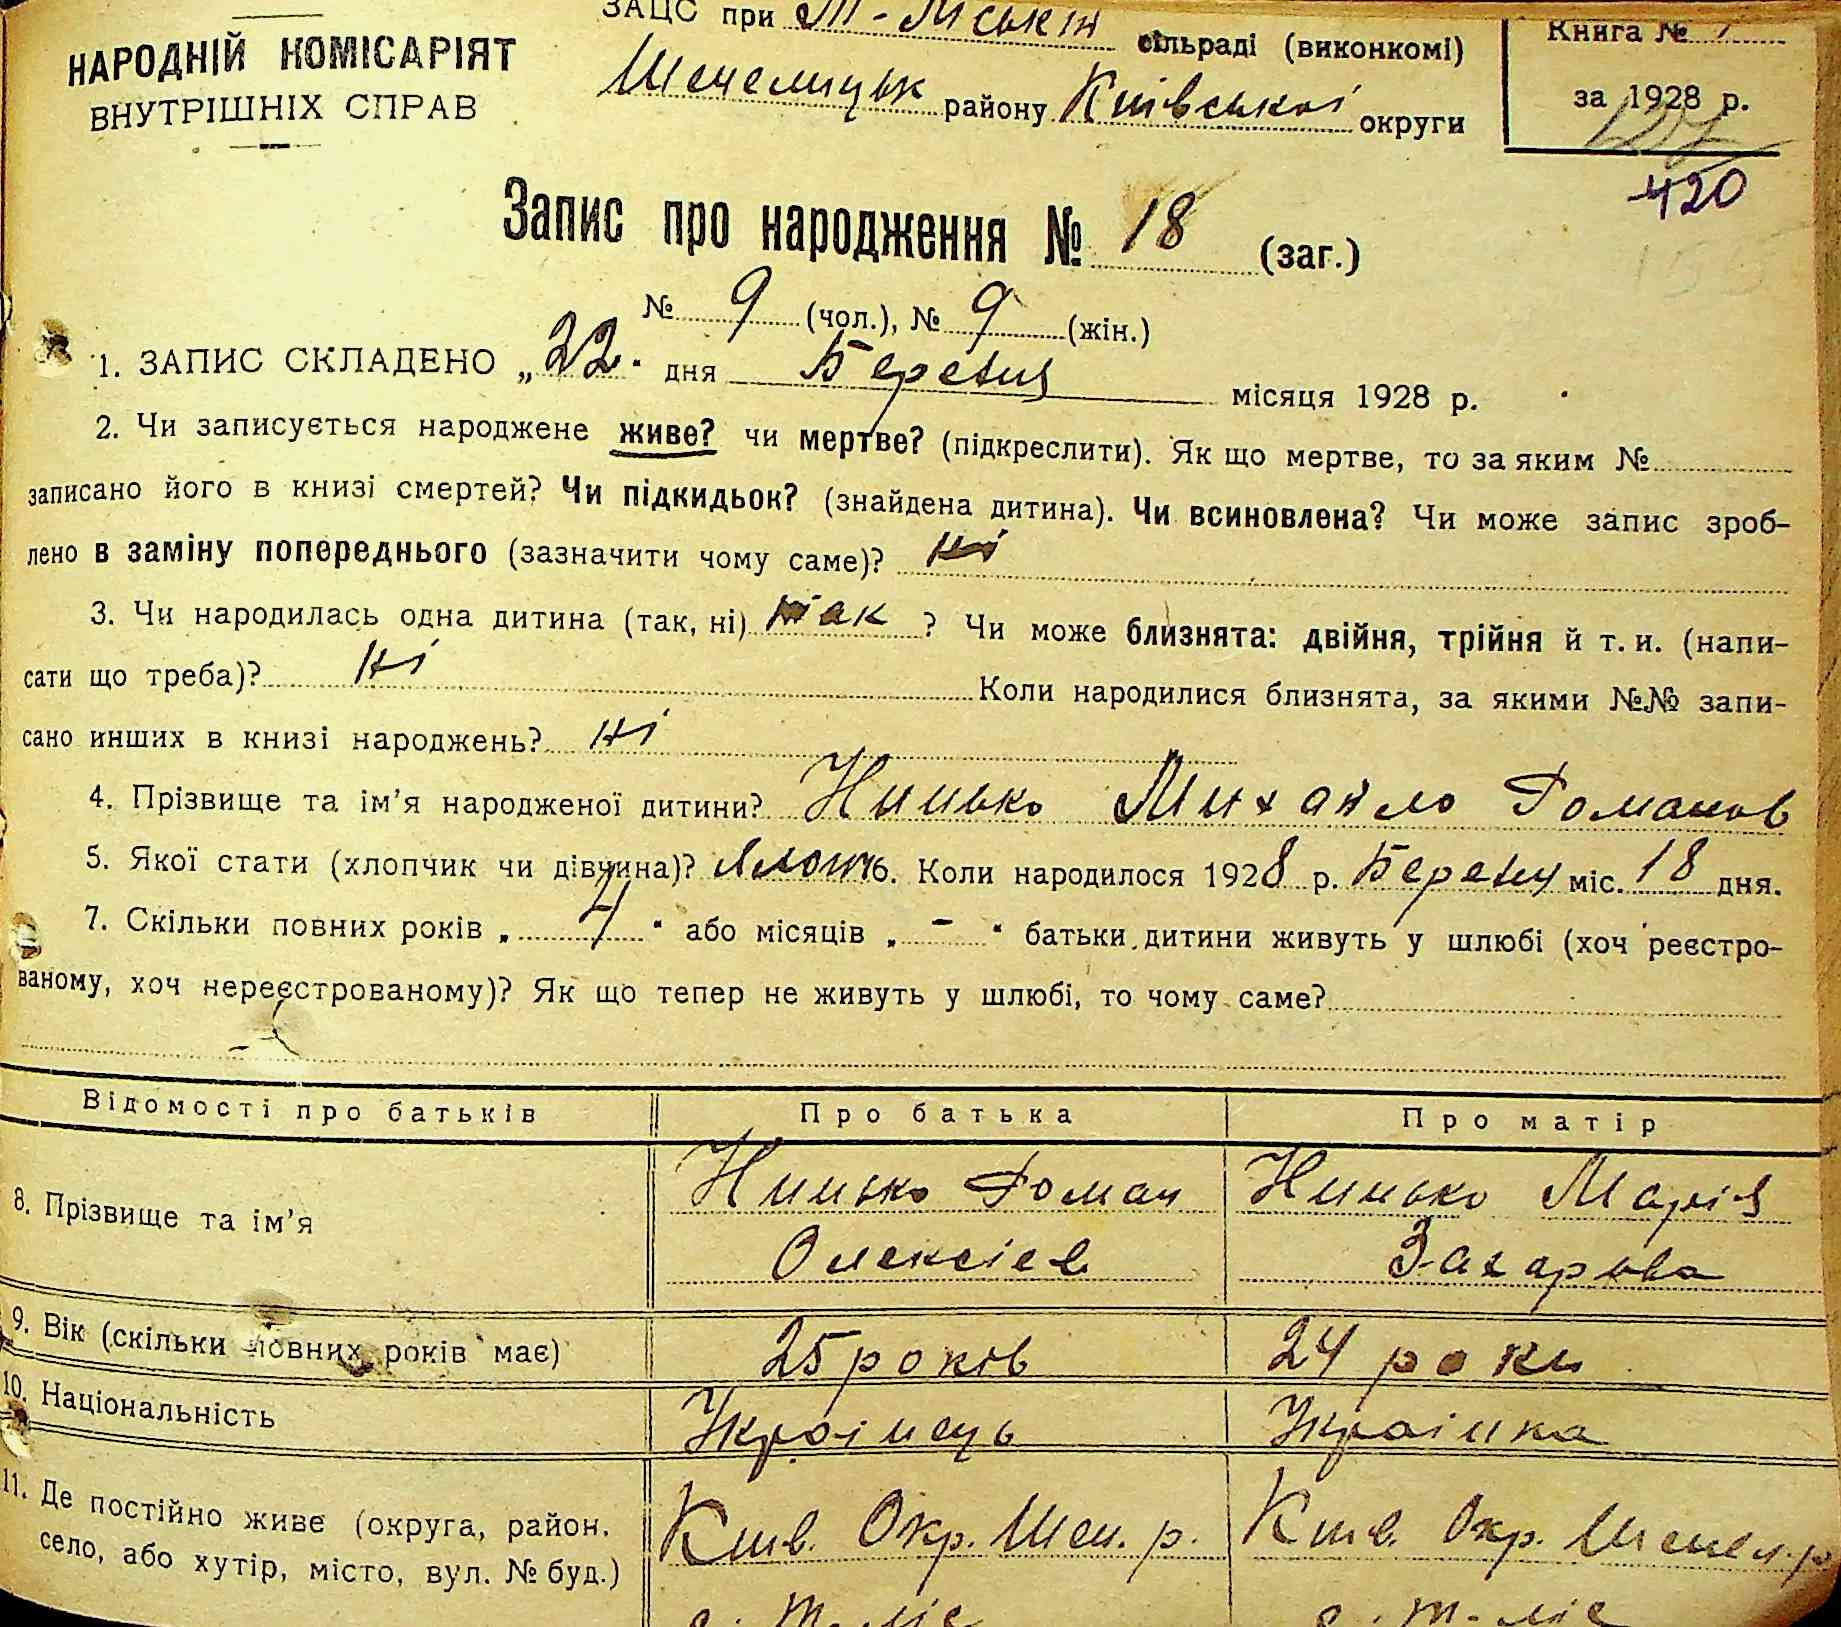 НАРОДНІЙ КОМІСАРІЯТ
ВНУТРІШНІХ СПРАВ
ЗАЦС при Т-Ліській сільраді (виконкомі)
району Київської округи
Книга №
за 1928 р.
420
Запис про народження № 18 (заг.)
№ 9 (чол.), № 9 (жін.)
1. ЗАПИС СКЛАДЕНО „22" дня Березня місяця 1928 р.
2. Чи записується народжене живе? чи мертве? (підкреслити). Як що мертве, то за яким №
записано його в книзі смертей? Чи підкидьок? (знайдена дитина). Чи всиновлена? Чи може запис зроб-
лено в заміну попереднього (зазначити чому саме)? ні
3. Чи народилась одна дитина (так, ні) так ? Чи може близнята: двійня, трійня й т. и. (напи-
сати що треба)? ні Коли народилися близнята, за якими №№ запи-
сано инших в книзі народжень? ні
4. Прізвище та ім'я народженої дитини? Нинько Михайло Романов
5. Якої стати (хлопчик чи дівчина)? Хлопч. Коли народилося 1928 р. Березня міс. 18 дня.
7. Скільки повних років „ 4 " або місяців „ - " батьки дитини живуть у шлюбі (хоч реєстро-
ваному, хоч нереєстрованому)? Як що тепер не живуть у шлюбі, то чому саме?
Відомості про батьків Про батька Про матір
8. Прізвище та ім'я Нинько Роман Нинько Марія
Олексієв Захарова
9. Вік (скільки повних років має) 25 років 24 роки
10. Національність Українець Українка
11. Де постійно живе (округа, район, Київ. Окр. Шеп. р. Київ. Окр. р
село, або хутір, місто, вул. № буд.)
с. Т-Ліс с. Т-Ліс